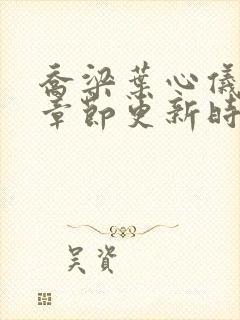 乔梁葉心儀
章節更新時
吴資